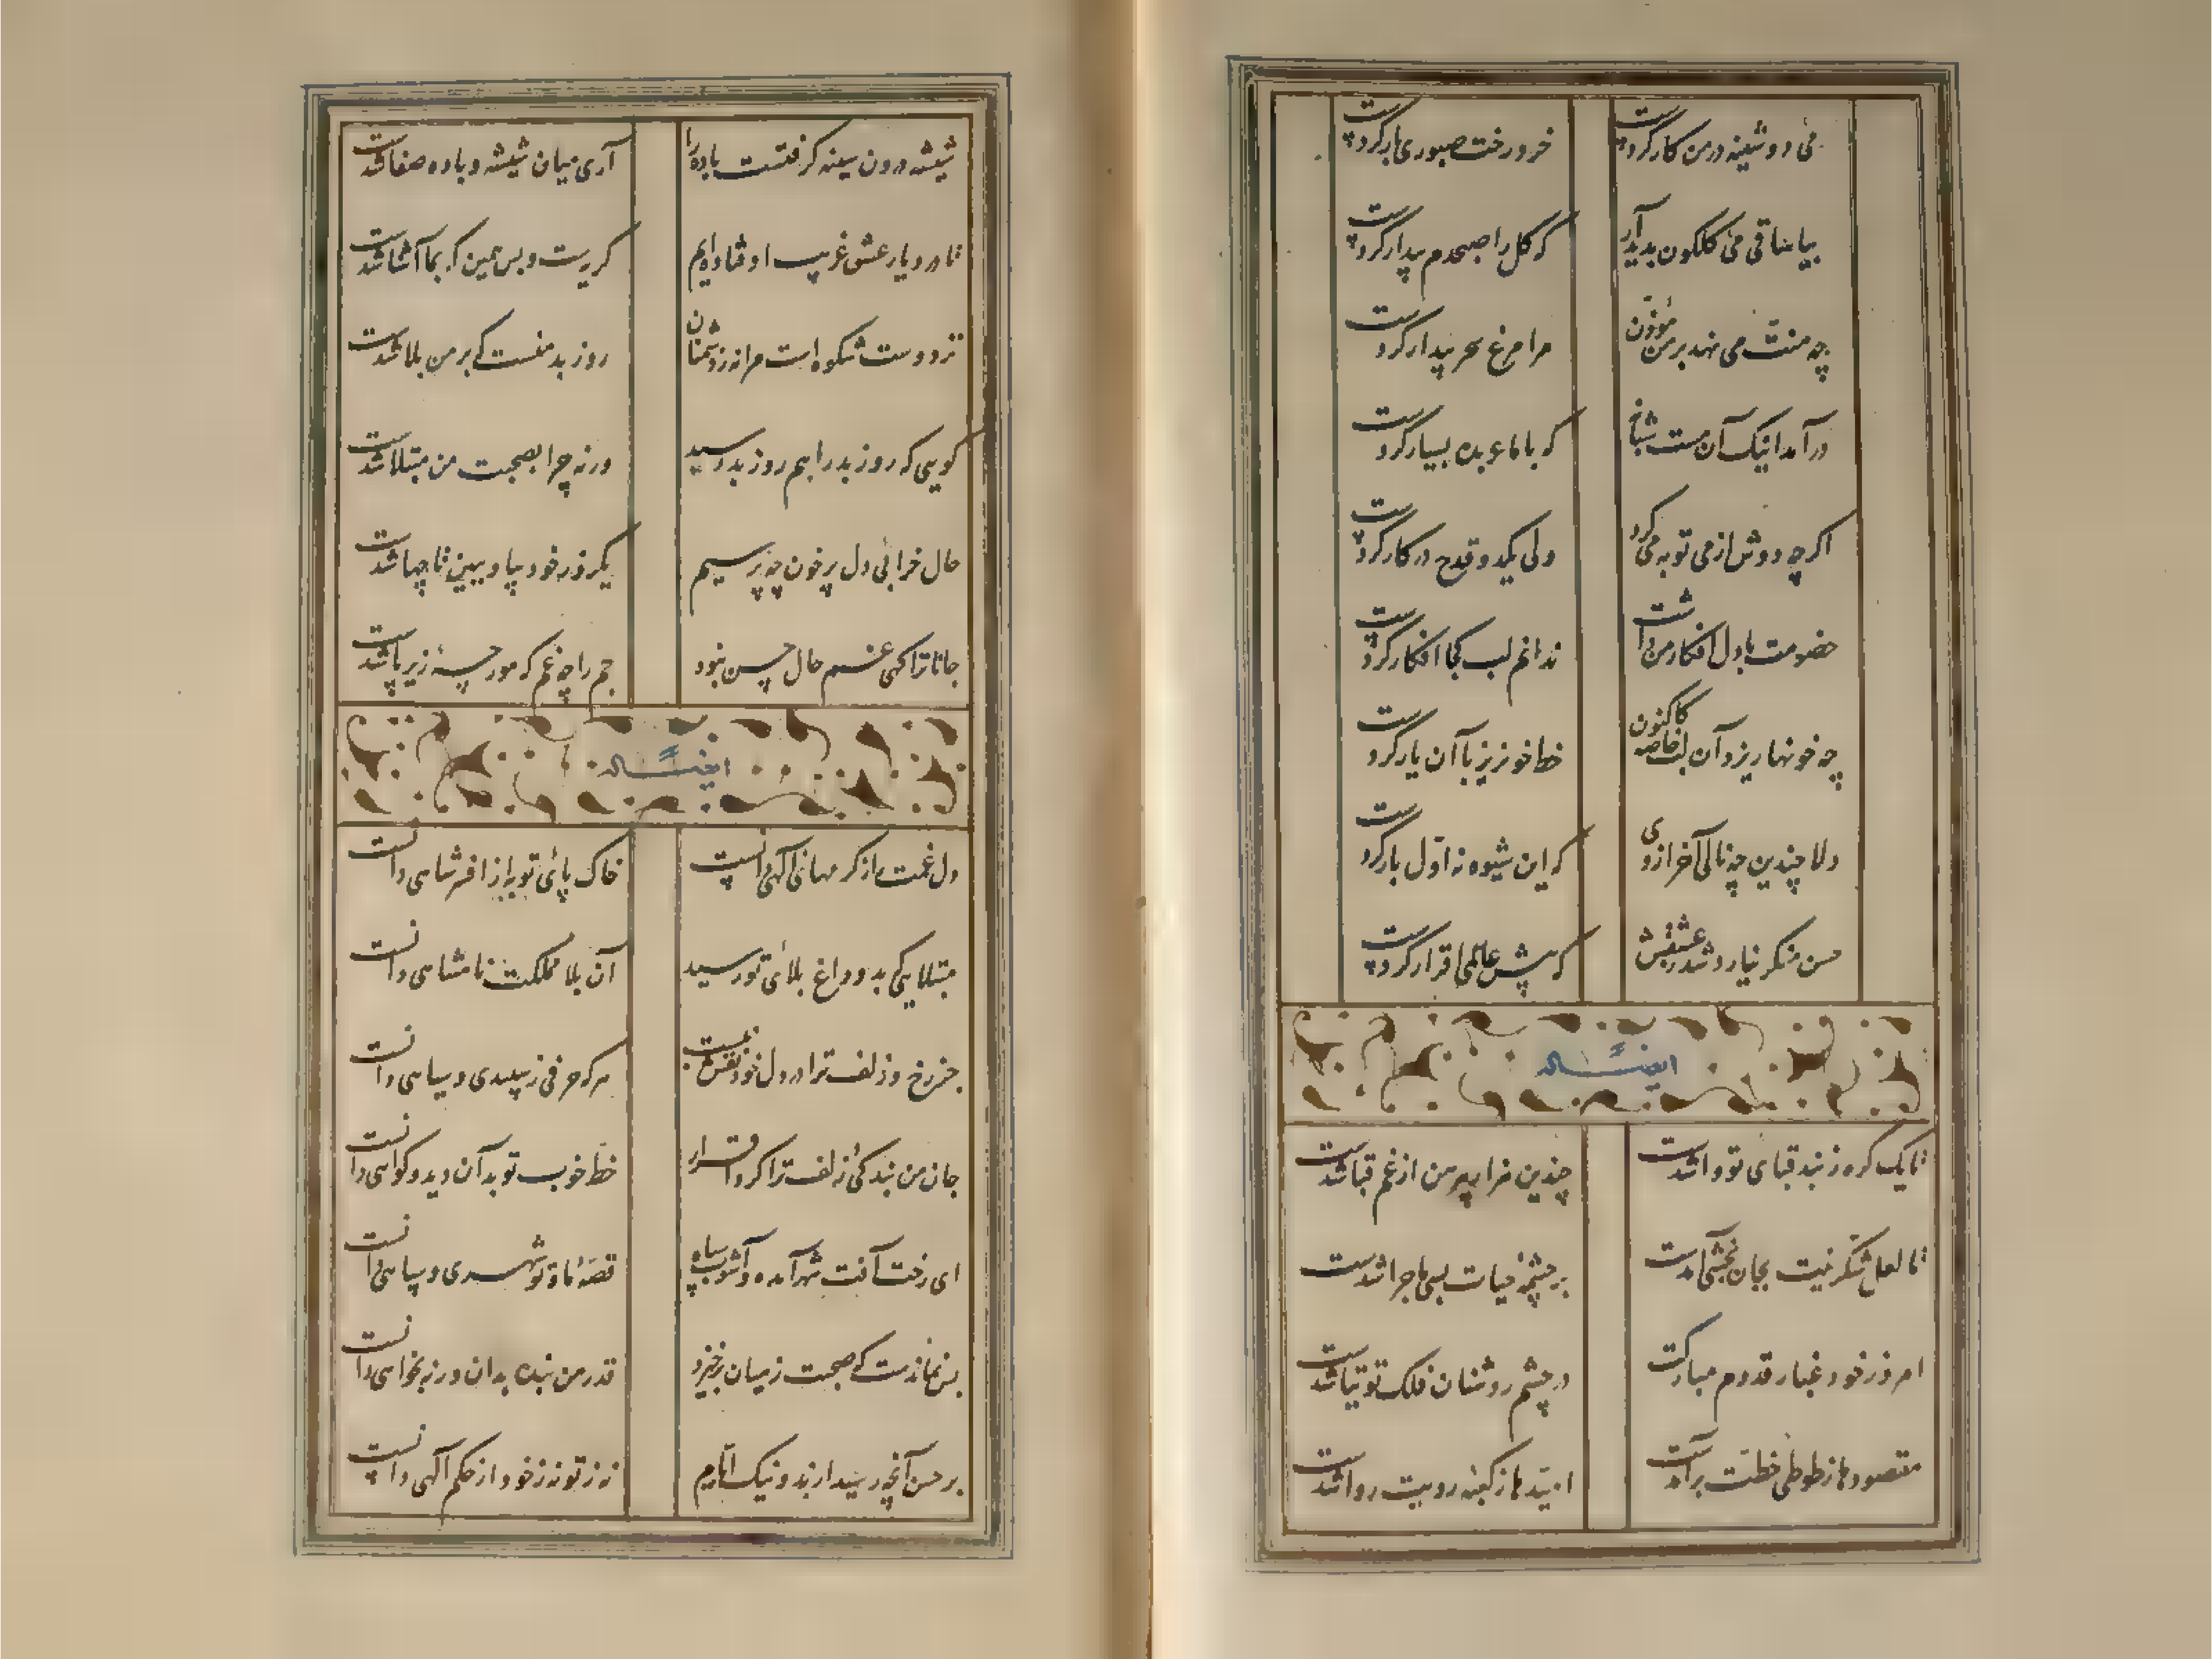 می دوشینه در من کار کردست
خرد رخت صبوری بار کردست
بیا ساقی می گلگون بدید آر
که گل را صبحدم بیدار کردست
چه منت می نهد بر من مؤذن
مرا مرغ سحر بیدار کردست
درآمد اینک آن مست شبانخ
که با ما عربده بسیار کردست
اگرچه دوش از می توبه می کرد
ولی یک دو قدح در کار کردست
خصومت با دل افکار من داشت
ندانم لب کجا افکار کردست
چه خونها ریزد آن لب خاصه کاکنون
خط خونریز با آن یار کردست
دلا چندین چه نالی آخر از وی
که این شیوه نه اول بار کردست
حسن منکر نیارد شد ز عشقش
که پیش عالمی اقرار کردست
ایضا له
تا یک گره ز بند قبای تو وا شدست
چندین هزار پیرهن از غم قبا شدست
تا لعل شکرینت بجان بخشی آمدست
بر چشمه حیات بسی ماجرا شدست
امروز خود غبار قدوم مبارکت
در چشم روشنان فلک توتیا شدست
مقصود ما ز طوطی خطت برآمدست
امید ما ز کعبه رویت روا شدست
شیشه درون سینه گرفتست باده را
آری میان شیشه و باده صفا شدست
تا در دیار عشق غریب اوفتاده ایم
گریست و بس همین که بما آشنا شدست
نز دوست شکوه است مرا نه ز دشمنان
روز بد منست که بر من بلا شدست
گویی که روز بد را هم روز بد رسید
ورنه چرا بصحبت من مبتلا شدست
حال خرابی دل پر خون چه پرسیم
یکروز خود بیا و ببین تا چها شدست
جانا ترا گهی غم حال حسن نبود
جم را چه غم که مورچه زیر پا شدست
ایضا له
دل غمت باز کر مهانی آلهی دانست
خاک پای تو به از افسر شاهی دانست
مبتلایی که بدو داغ بلای تو رسید
آن بلا مملکت نامتناهی دانست
جز رخ و زلف ترا در دل خود نقش نبست
هر که حرفی ز سپیدی و سیاهی دانست
جان من بندگی زلف ترا کرد اقرار
خط خوب تو بدآن دید و گواهی دانست
ای رخت آفت شهر آمده و آشوب سپاه
قصه ما و تو شهری و سپاهی دانست
بس نماندست که صحبت ز میان برخیزد
قدر من بنده بدان ورنه نخواهی دانست
بر حسن آنچه رسید از بد و نیک ایام
نه ز تو نه ز خود از حکم آلهی دانست